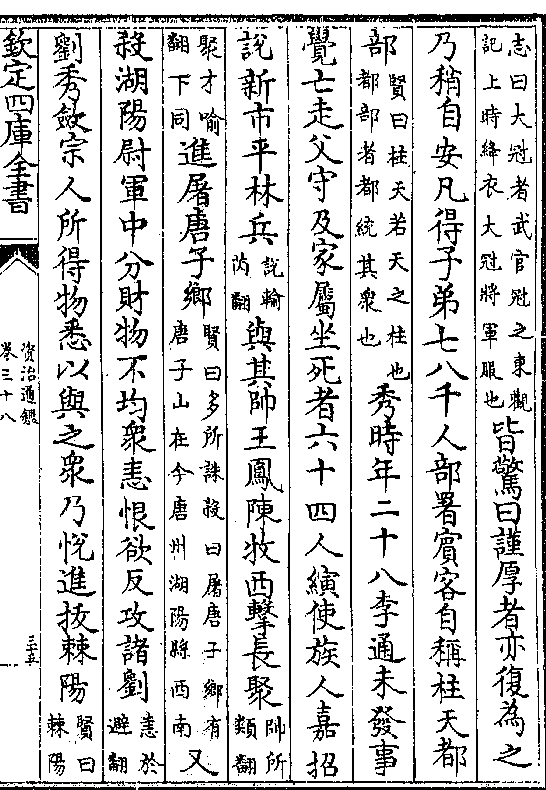 志曰大冠者武官冠之東觀
記上時絳衣大冠將軍服也
皆驚曰謹厚者亦復為之
乃稍自安凡得子弟七八千人部署賓客自稱柱天都
部
賢曰柱天若天之柱也
都部者都統其衆也
秀時年二十八李通未發事
覺亡走父守及家屬坐死者六十四人縯使族人嘉招
說新市平林兵
說輸
芮翻
與其帥王鳳陳牧西擊長聚
帥所
類翻
聚才喻
翻下同
進屠唐子鄉
賢曰多所誅殺曰屠唐子鄉有
唐子山在今唐州湖陽縣西南
又
殺湖陽尉軍中分財物不均衆恚恨欲反攻諸劉
恚於
避翻
劉秀斂宗人所得物悉以與之衆乃悅進拔棘陽
賢曰
棘陽
欽定四庫全書
資治通鑑
卷三十八
三五